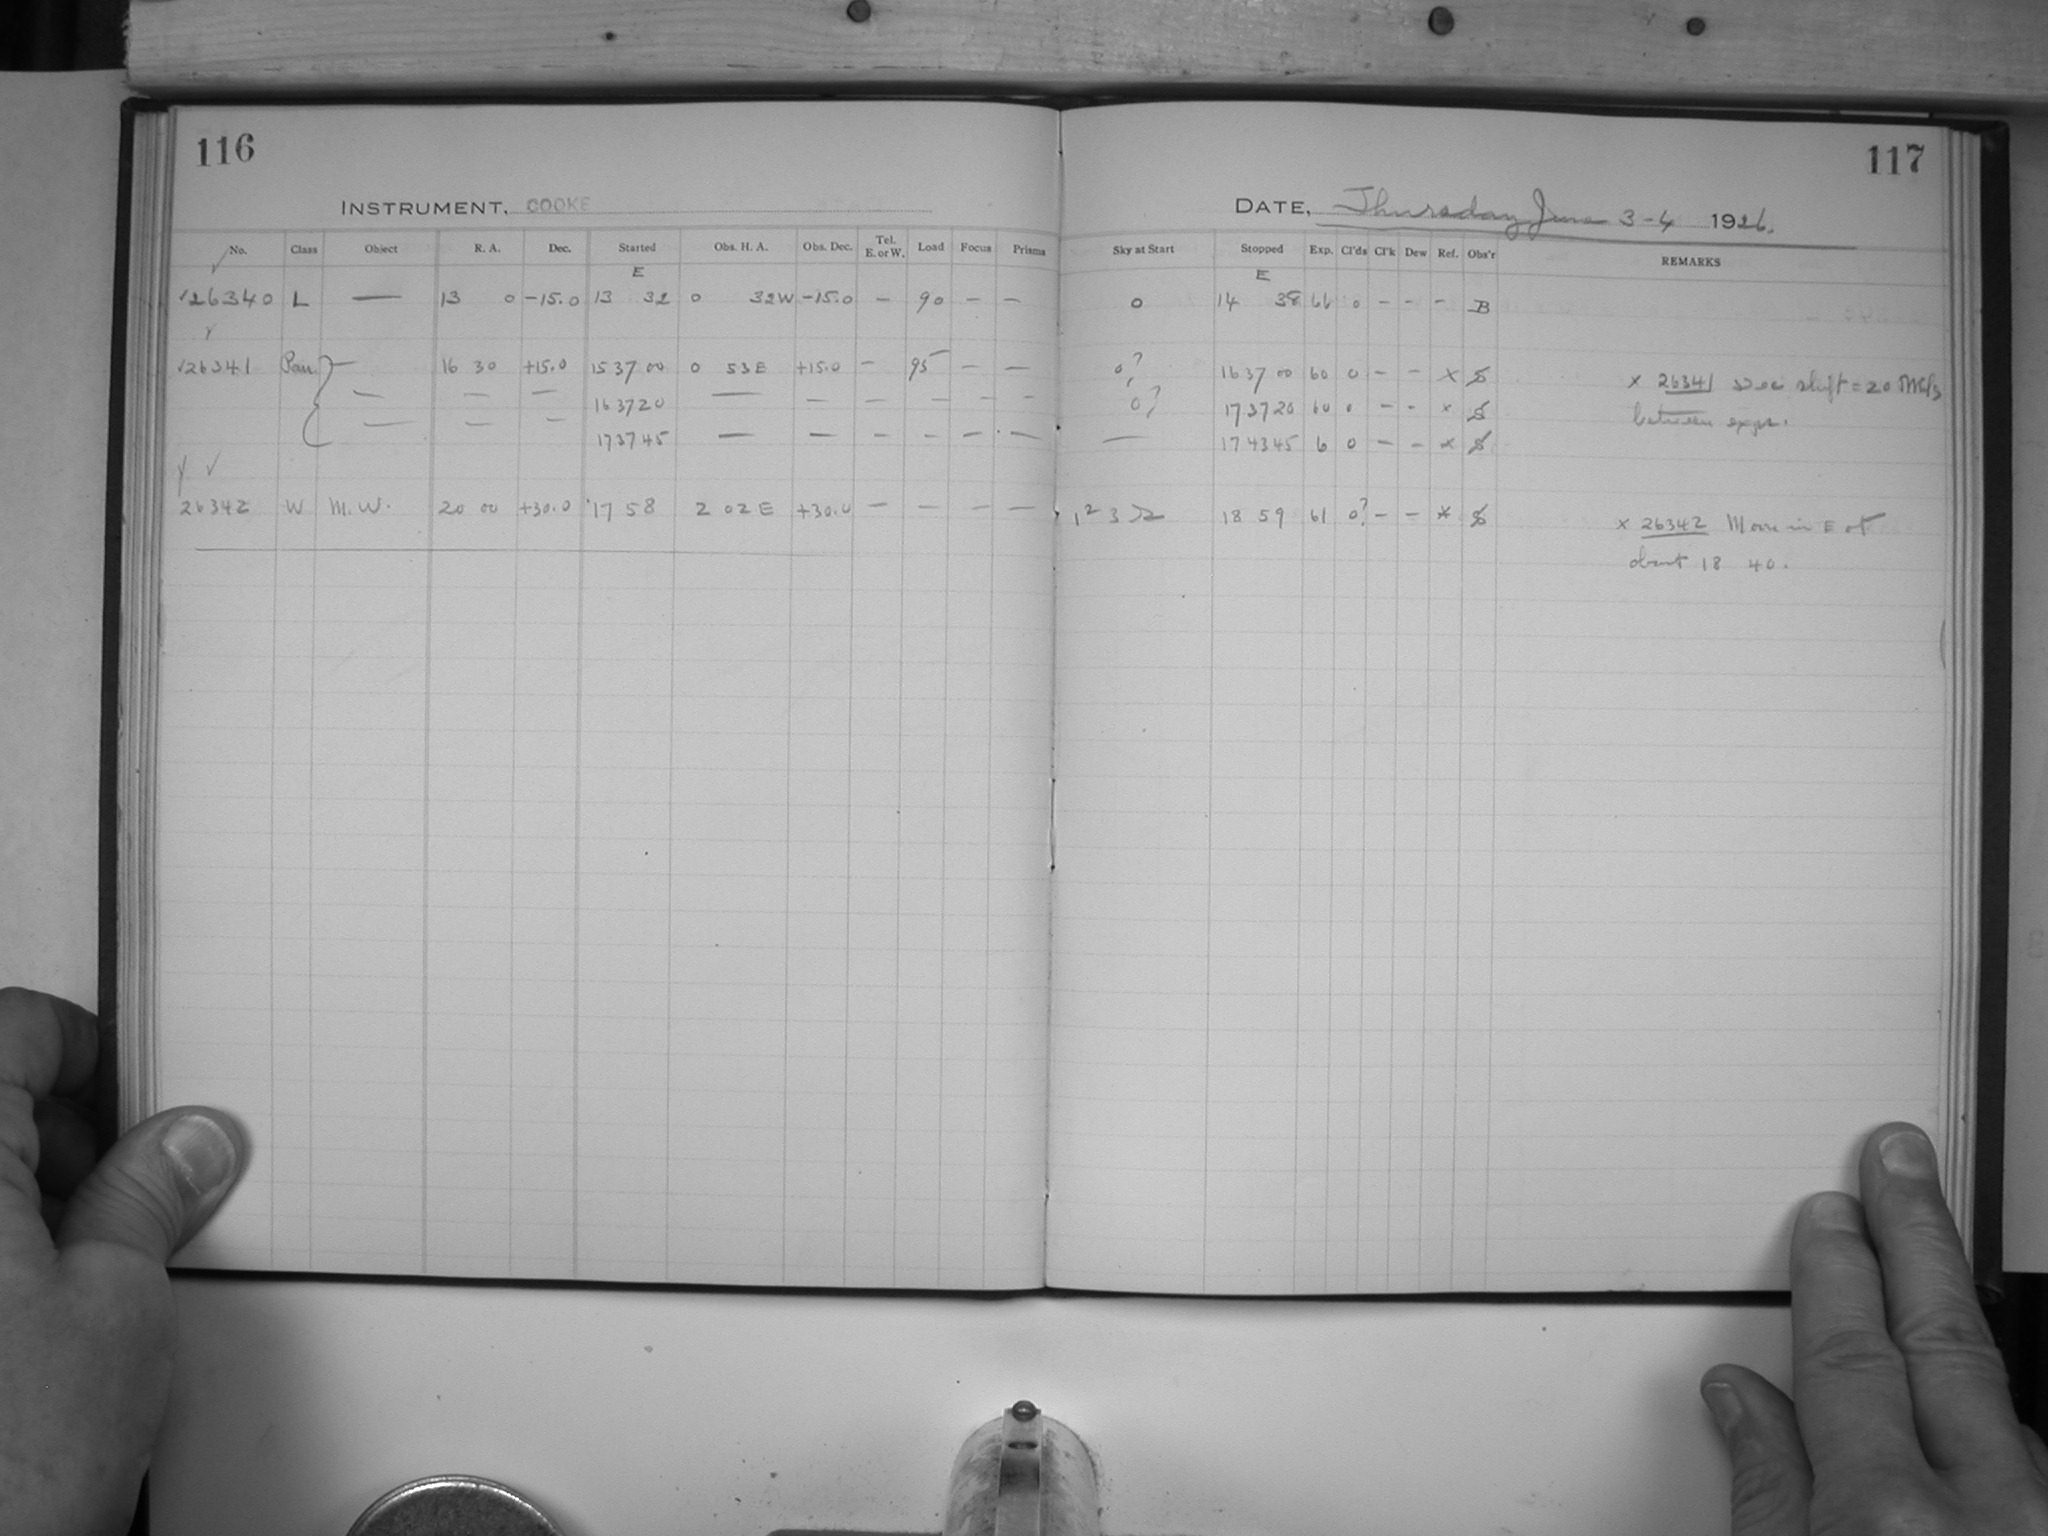 116
INSTRUMENT, COOKE
No. Class Object R. A. Dec. Started Obs. H. A. Obs. Dec. Tel. E. or W. Load Focus Prisms
E
26340 L — 13 0 -15.0 13 32 0 32W -15.0 — 90 — —
26341 Pan. — 16 30 +15.0 15 37 00 0 53 E +15.0 — 95 — —
— — — 16 37 20 — — — — — —
— — — 17 37 45 — — — — — —
26342 W M.W. 20 00 +30.0 17 58 2 02 E +30.0 — — — —
117
DATE, Thursday June 3-4 1926.
Sky at Start Stopped Exp. Cl'ds Cl'k Dew Ref. Obs'r REMARKS
E
0 14 38 66 0 — — — B
0? 16 37 00 60 0 — — x S x 26341 Dec shift = 20
0? 17 37 20 60 0 — — x S between exps.
— 17 43 45 6 0 — — x S
1 2 3 18 59 61 0? — — x S x 26342 Moon in E at
about 18 40.